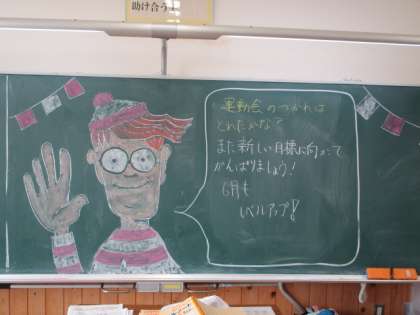 助け合う
運動会のつかれは
とれたかな？
また新しい目標に向かって
がんばりましょう！
6月も
レベルアップ！